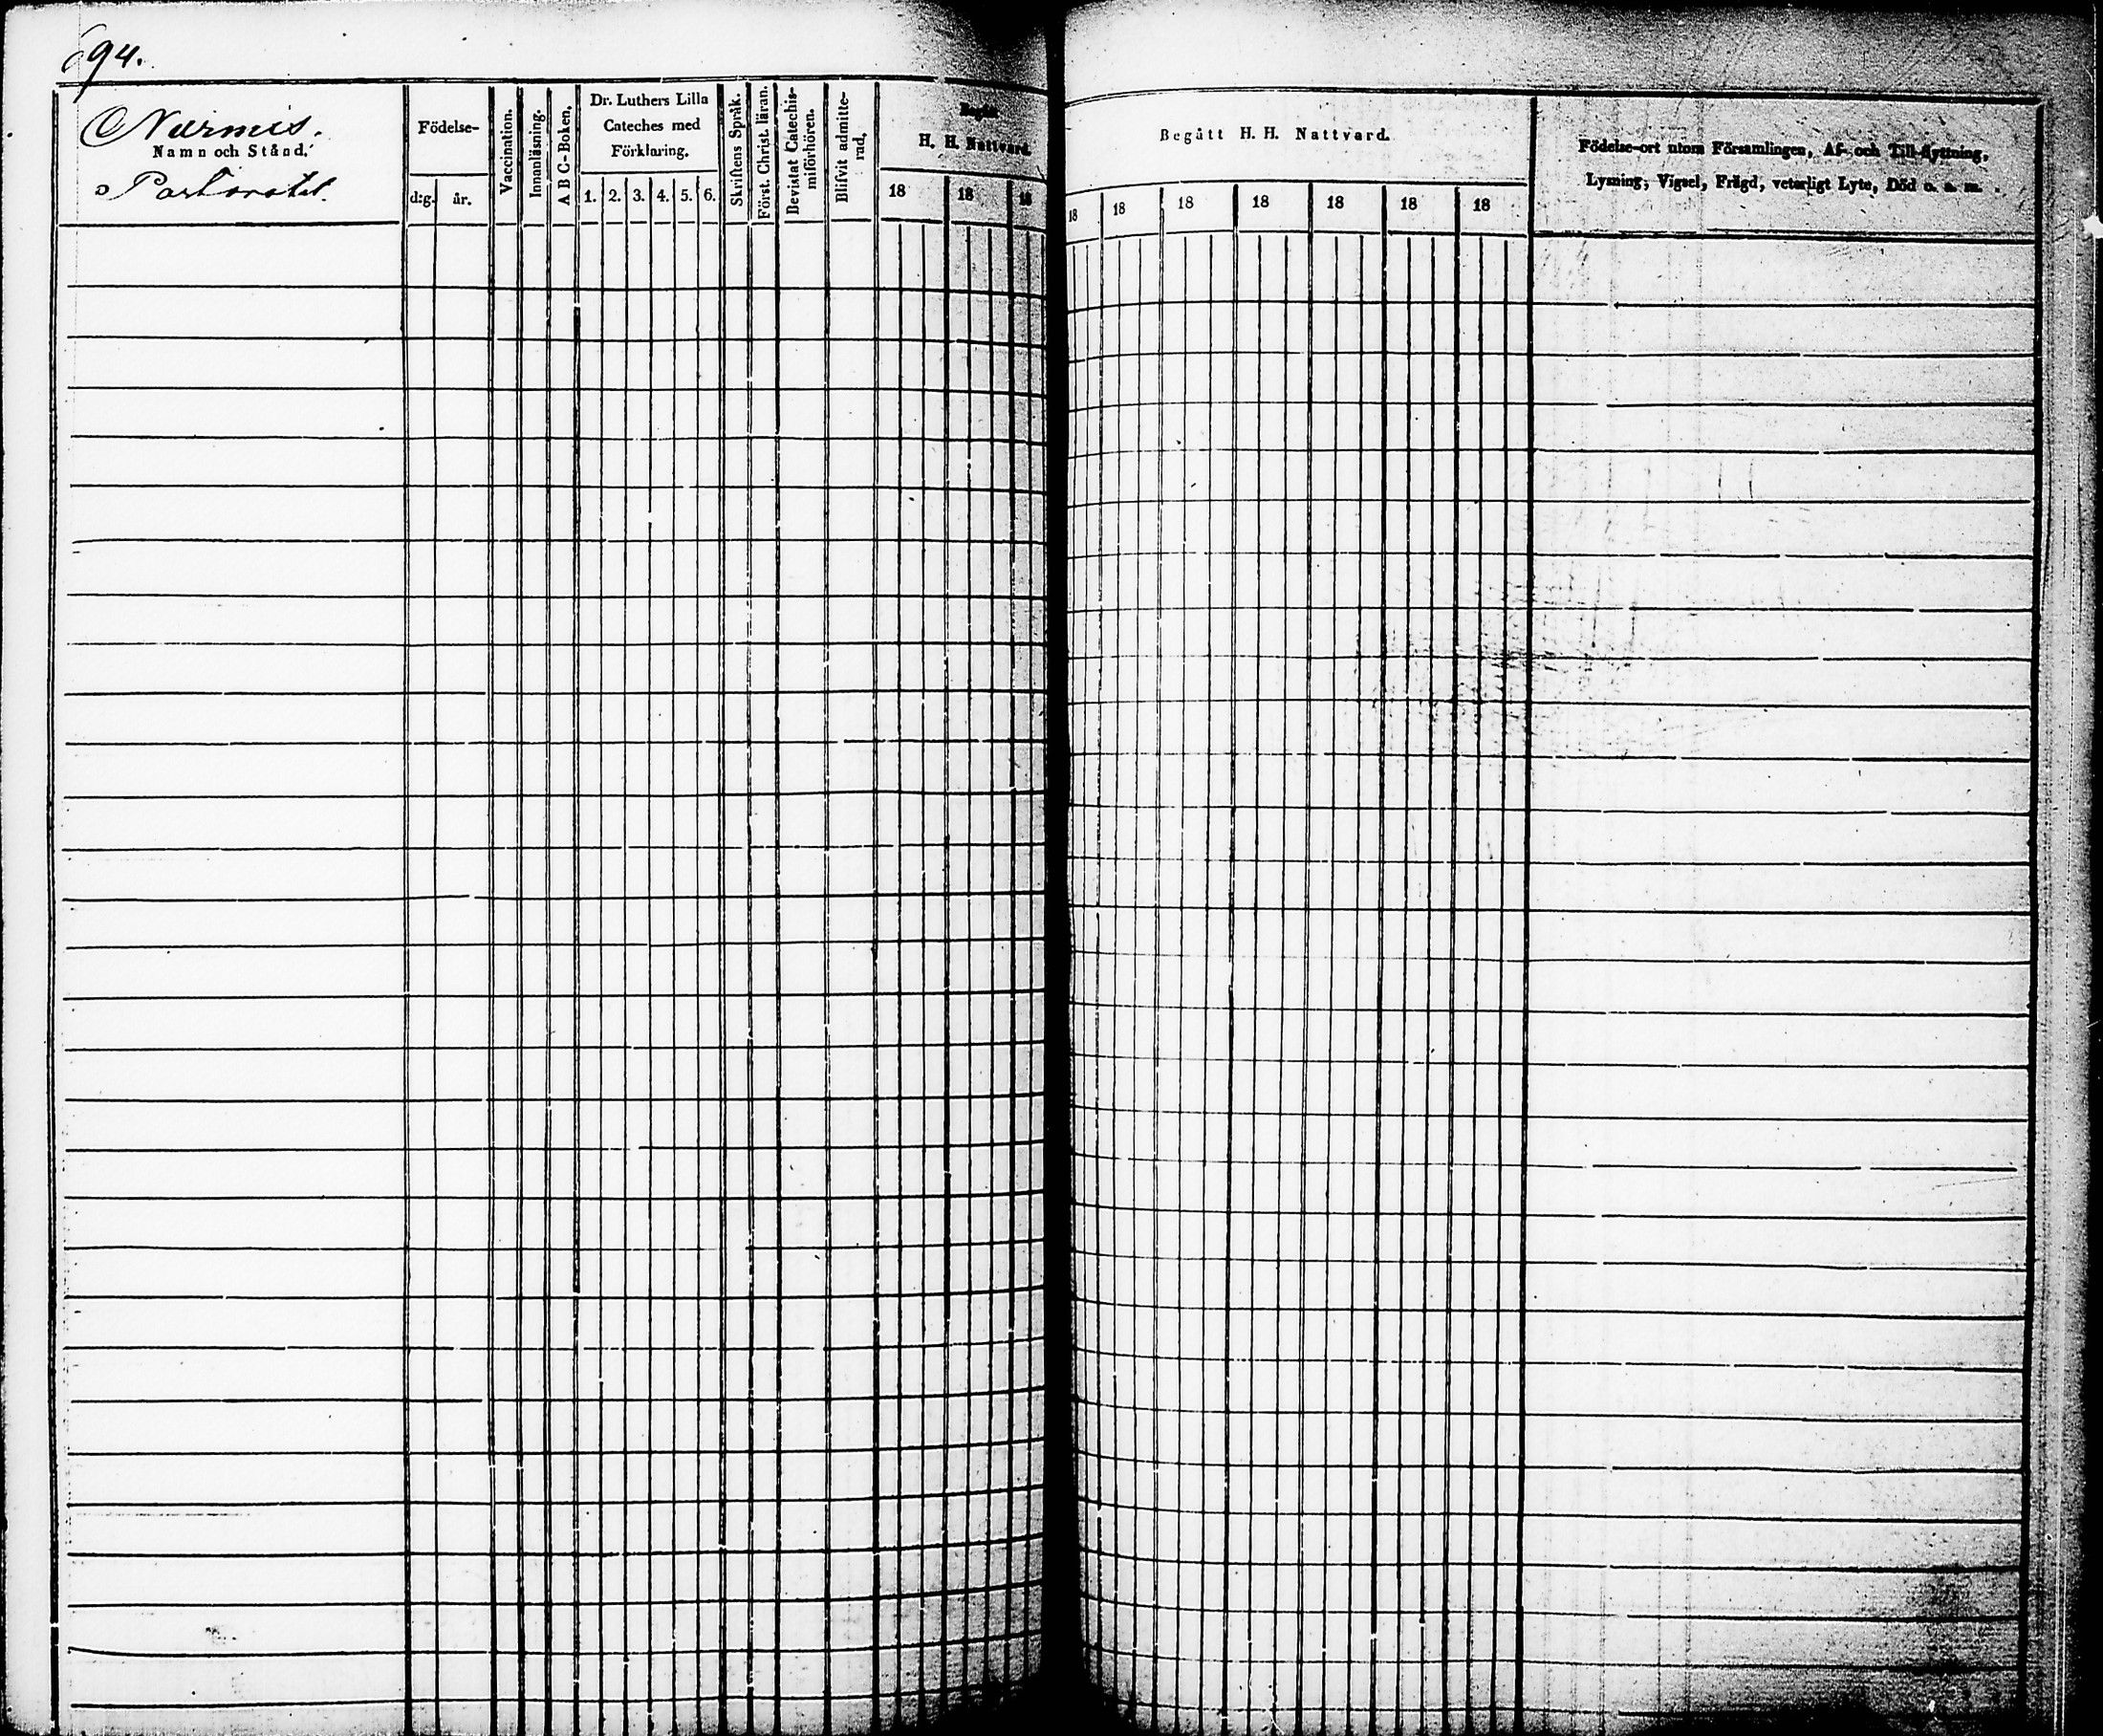 694.
Nurmis.
Namn och Stånd.
Pastoratet.
Födelse-
d:g. år.
Vaccination.
Innanläsning.
A B C-Boken.
Dr. Luthers Lilla
Cateches med
Förklaring.
1. 2. 3. 4. 5. 6.
Skriftens Språk.
Först. Christ. läran.
Bevistat Catechis-
miförhören.
Blifvit admitte-
rad,
Begått
H. H. Nattvard.
18 18 18
Begått H. H. Nattvard.
18 18 18 18 18 18 18
Födelse-ort utom Församlingen, Af- och Till-flyttning,
Lysning, Vigsel, Frägd, veterligt Lyte, Död o. s. m.